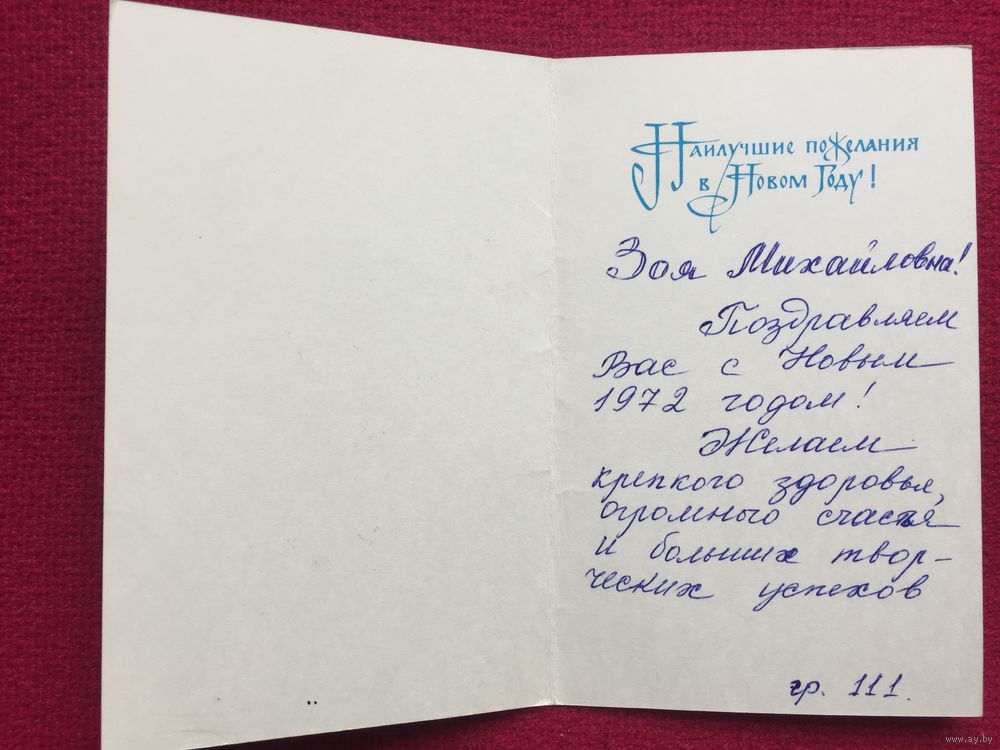 Наилучшие пожелания
в Новом Году!
Зоя Михайловна!
Поздравляем
Вас с Новым
1972 годом!
Желаем
крепкого здоровья,
огромного счастья
и больших твор-
ческих успехов
гр. 111.
www.ay.by